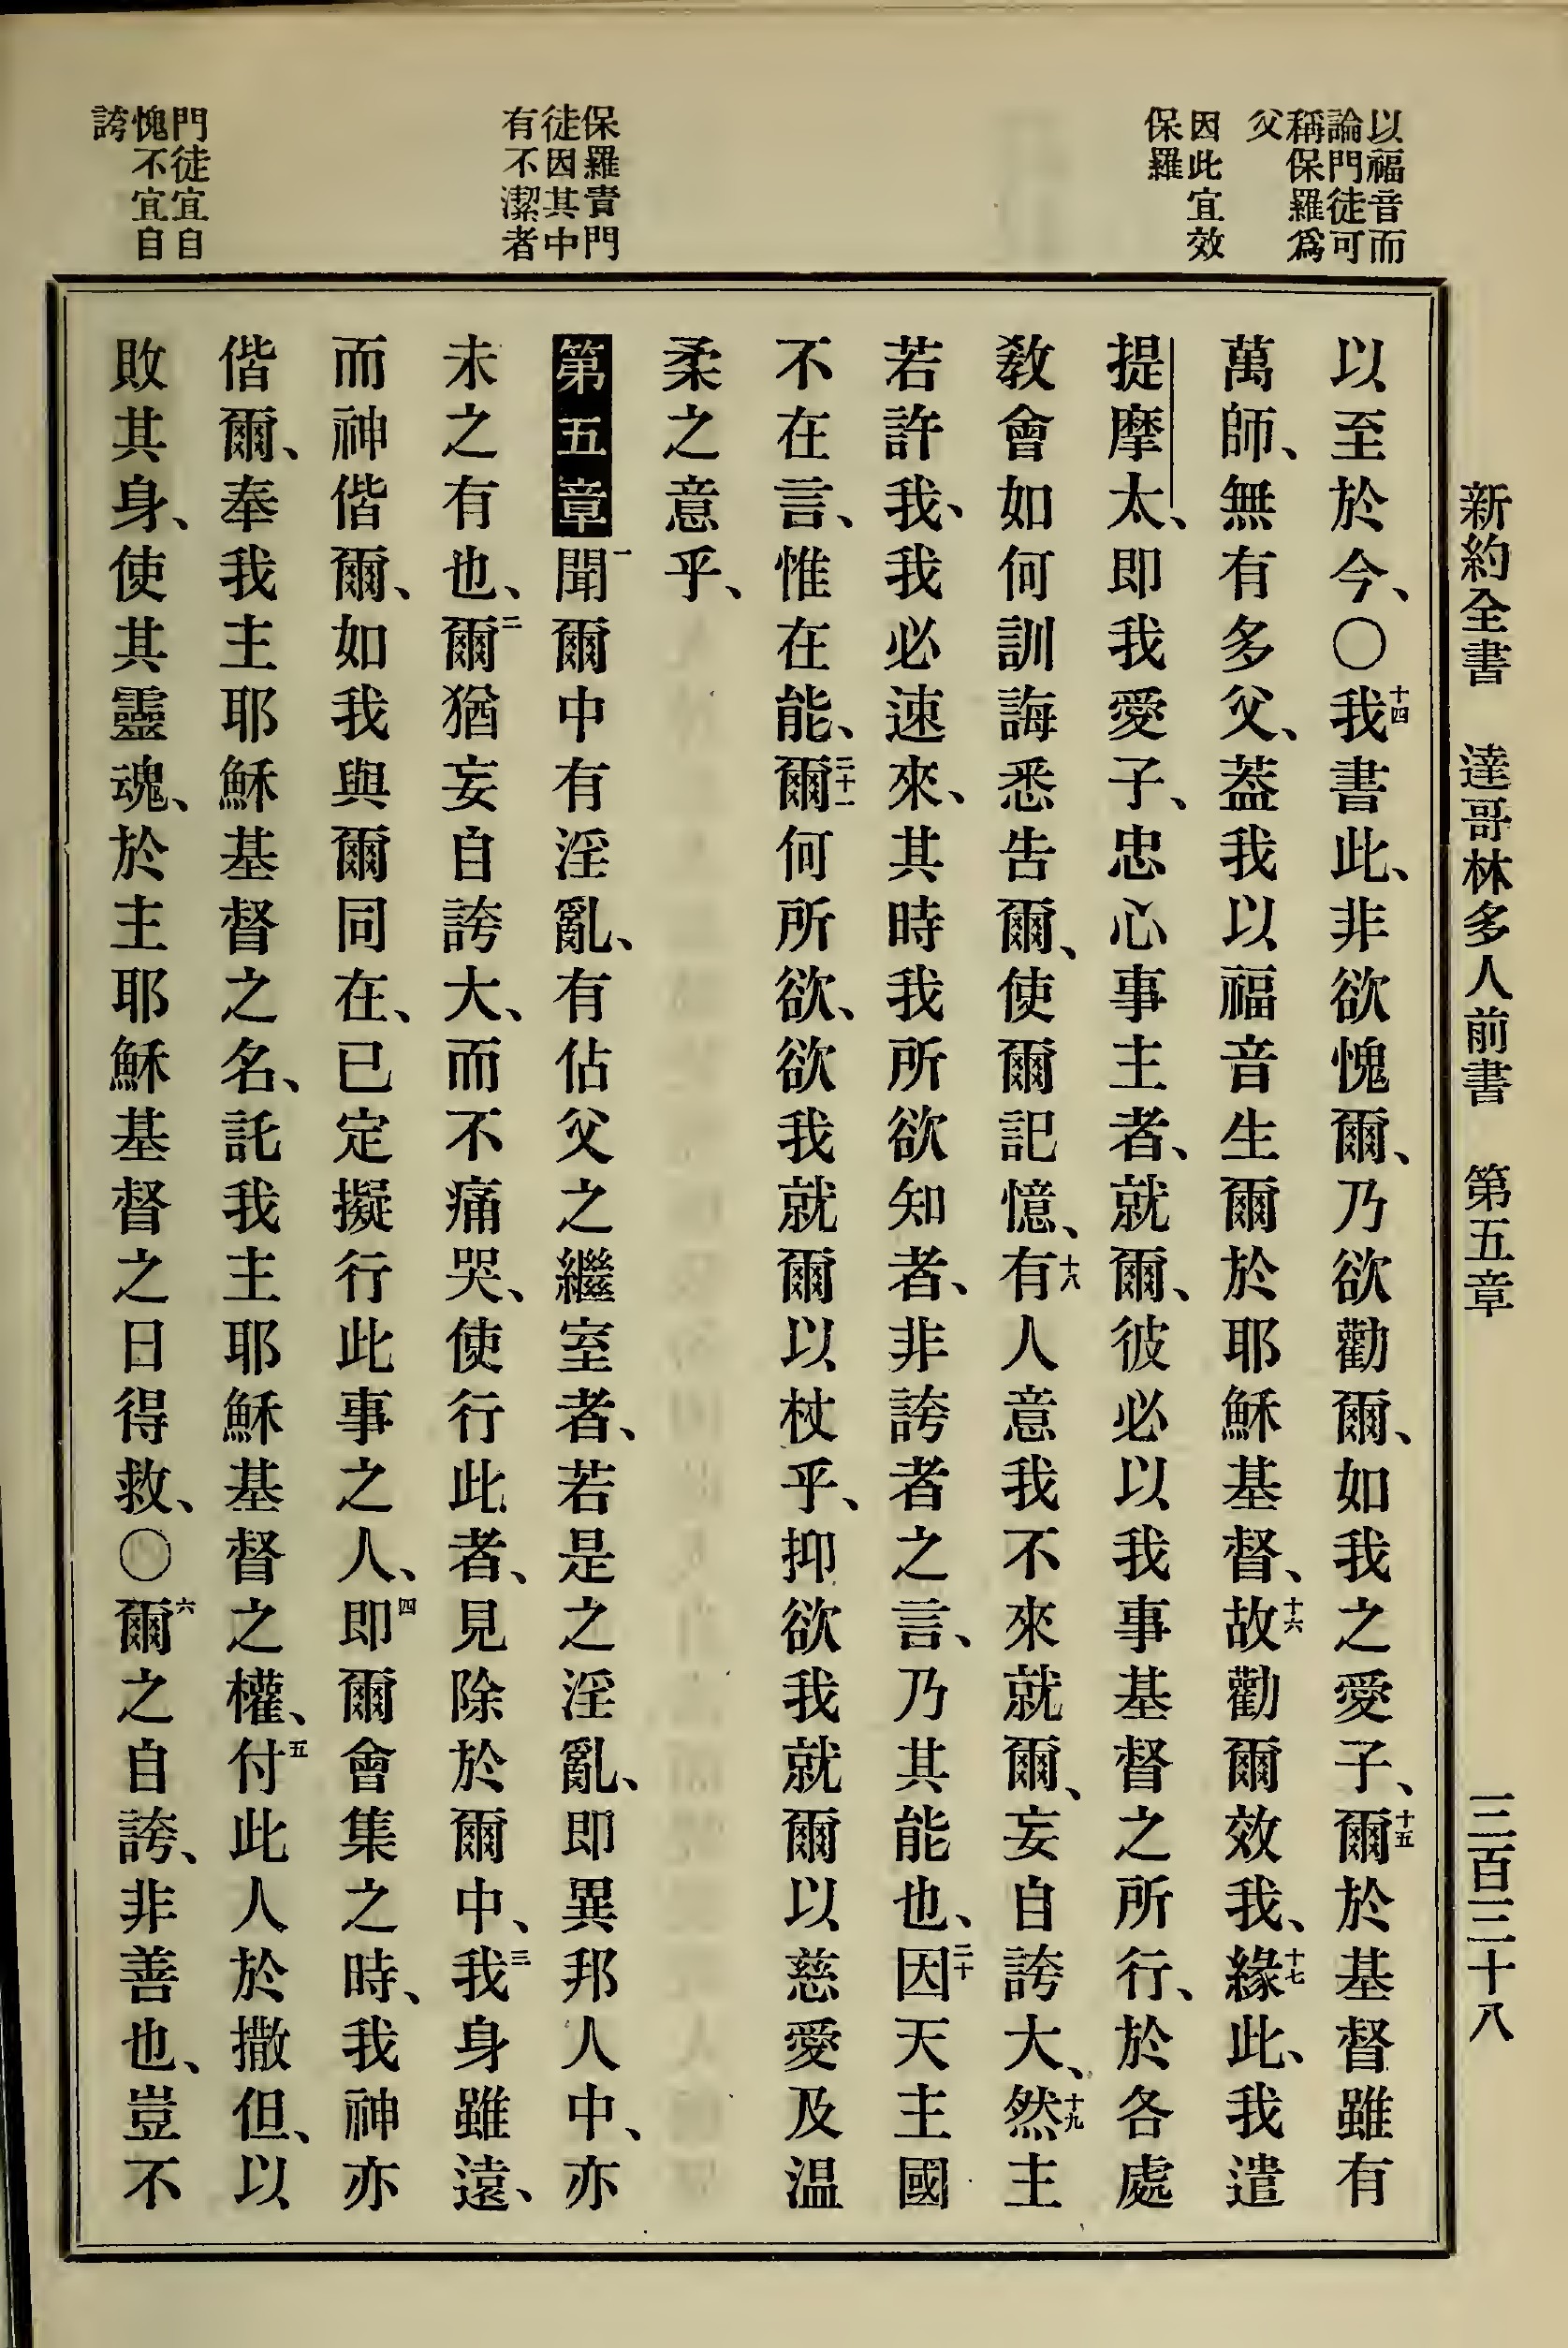 新約全書 達哥林多人前書 第五章 三百三十八
以福音而
論門徒可
稱保羅爲
父
因此宜效
保羅
保羅責門
徒因其中
有不潔者
門徒宜自
愧不宜自
誇
以至於今、〇十四我書此、非欲愧爾、乃欲勸爾、如我之愛子、十五爾於基督雖有
萬師、無有多父、蓋我以福音生爾於耶穌基督、十六故勸爾效我、十七緣此、我遣
提摩太、即我愛子、忠心事主者、就爾、彼必以我事基督之所行、於各處
敎會如何訓誨悉告爾、使爾記憶、十八有人意我不來就爾、妄自誇大、十九然主
若許我、我必速來、其時我所欲知者、非誇者之言、乃其能也、二十因天主國
不在言、惟在能、二十一爾何所欲、欲我就爾以杖乎、抑欲我就爾以慈愛及温
柔之意乎、
第五章一聞爾中有淫亂、有佔父之繼室者、若是之淫亂、即異邦人中、亦
未之有也、二爾猶妄自誇大、而不痛哭、使行此者、見除於爾中、三我身雖遠、
而神偕爾、如我與爾同在、已定擬行此事之人、四即爾會集之時、我神亦
偕爾、奉我主耶穌基督之名、託我主耶穌基督之權、五付此人於撒但、以
敗其身、使其靈魂、於主耶穌基督之日得救、〇六爾之自誇、非善也、豈不